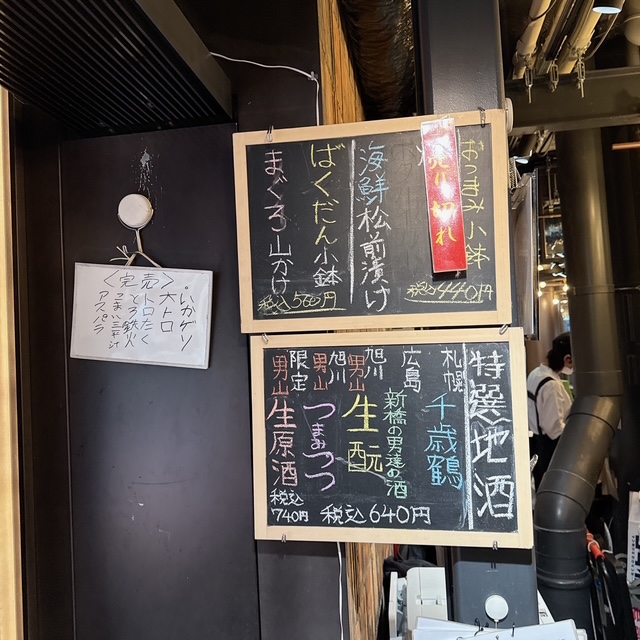 おつまみ小鉢
売り切れ
税込440円
海鮮松前漬け
ばくだん小鉢
まぐろ山かけ
税込560円
特選地酒
札幌
千歳鶴
広島
新橋の男達の酒
旭川
男山
生酛
旭川
男山
つまみつつ
税込640円
限定
男山
生原酒
税込
740円
<完売>
いかゲソ
大トロ
トロたく
とろ鉄火
アスパラ